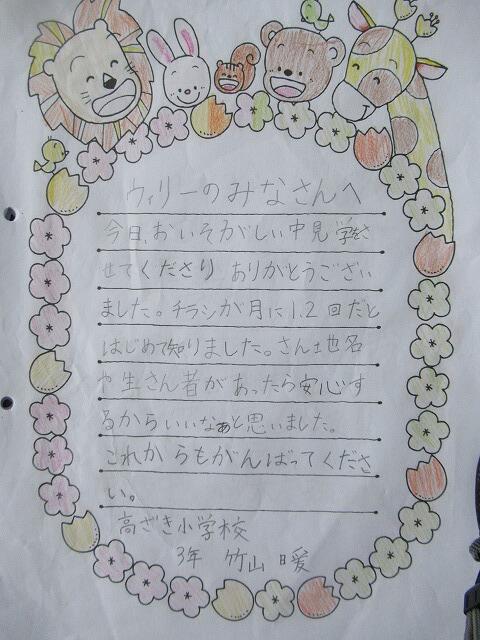 ウィリーのみなさんへ
今日、おいそがしい中見学さ
せてくださり ありがとうござい
ました。チラシが月に1.2回だと
はじめて知りました。さん地名
や生さん者があったら安心す
るからいいなぁと思いました。
これからもがんばってくださ
い。
高ざき小学校
3年 竹山 暖